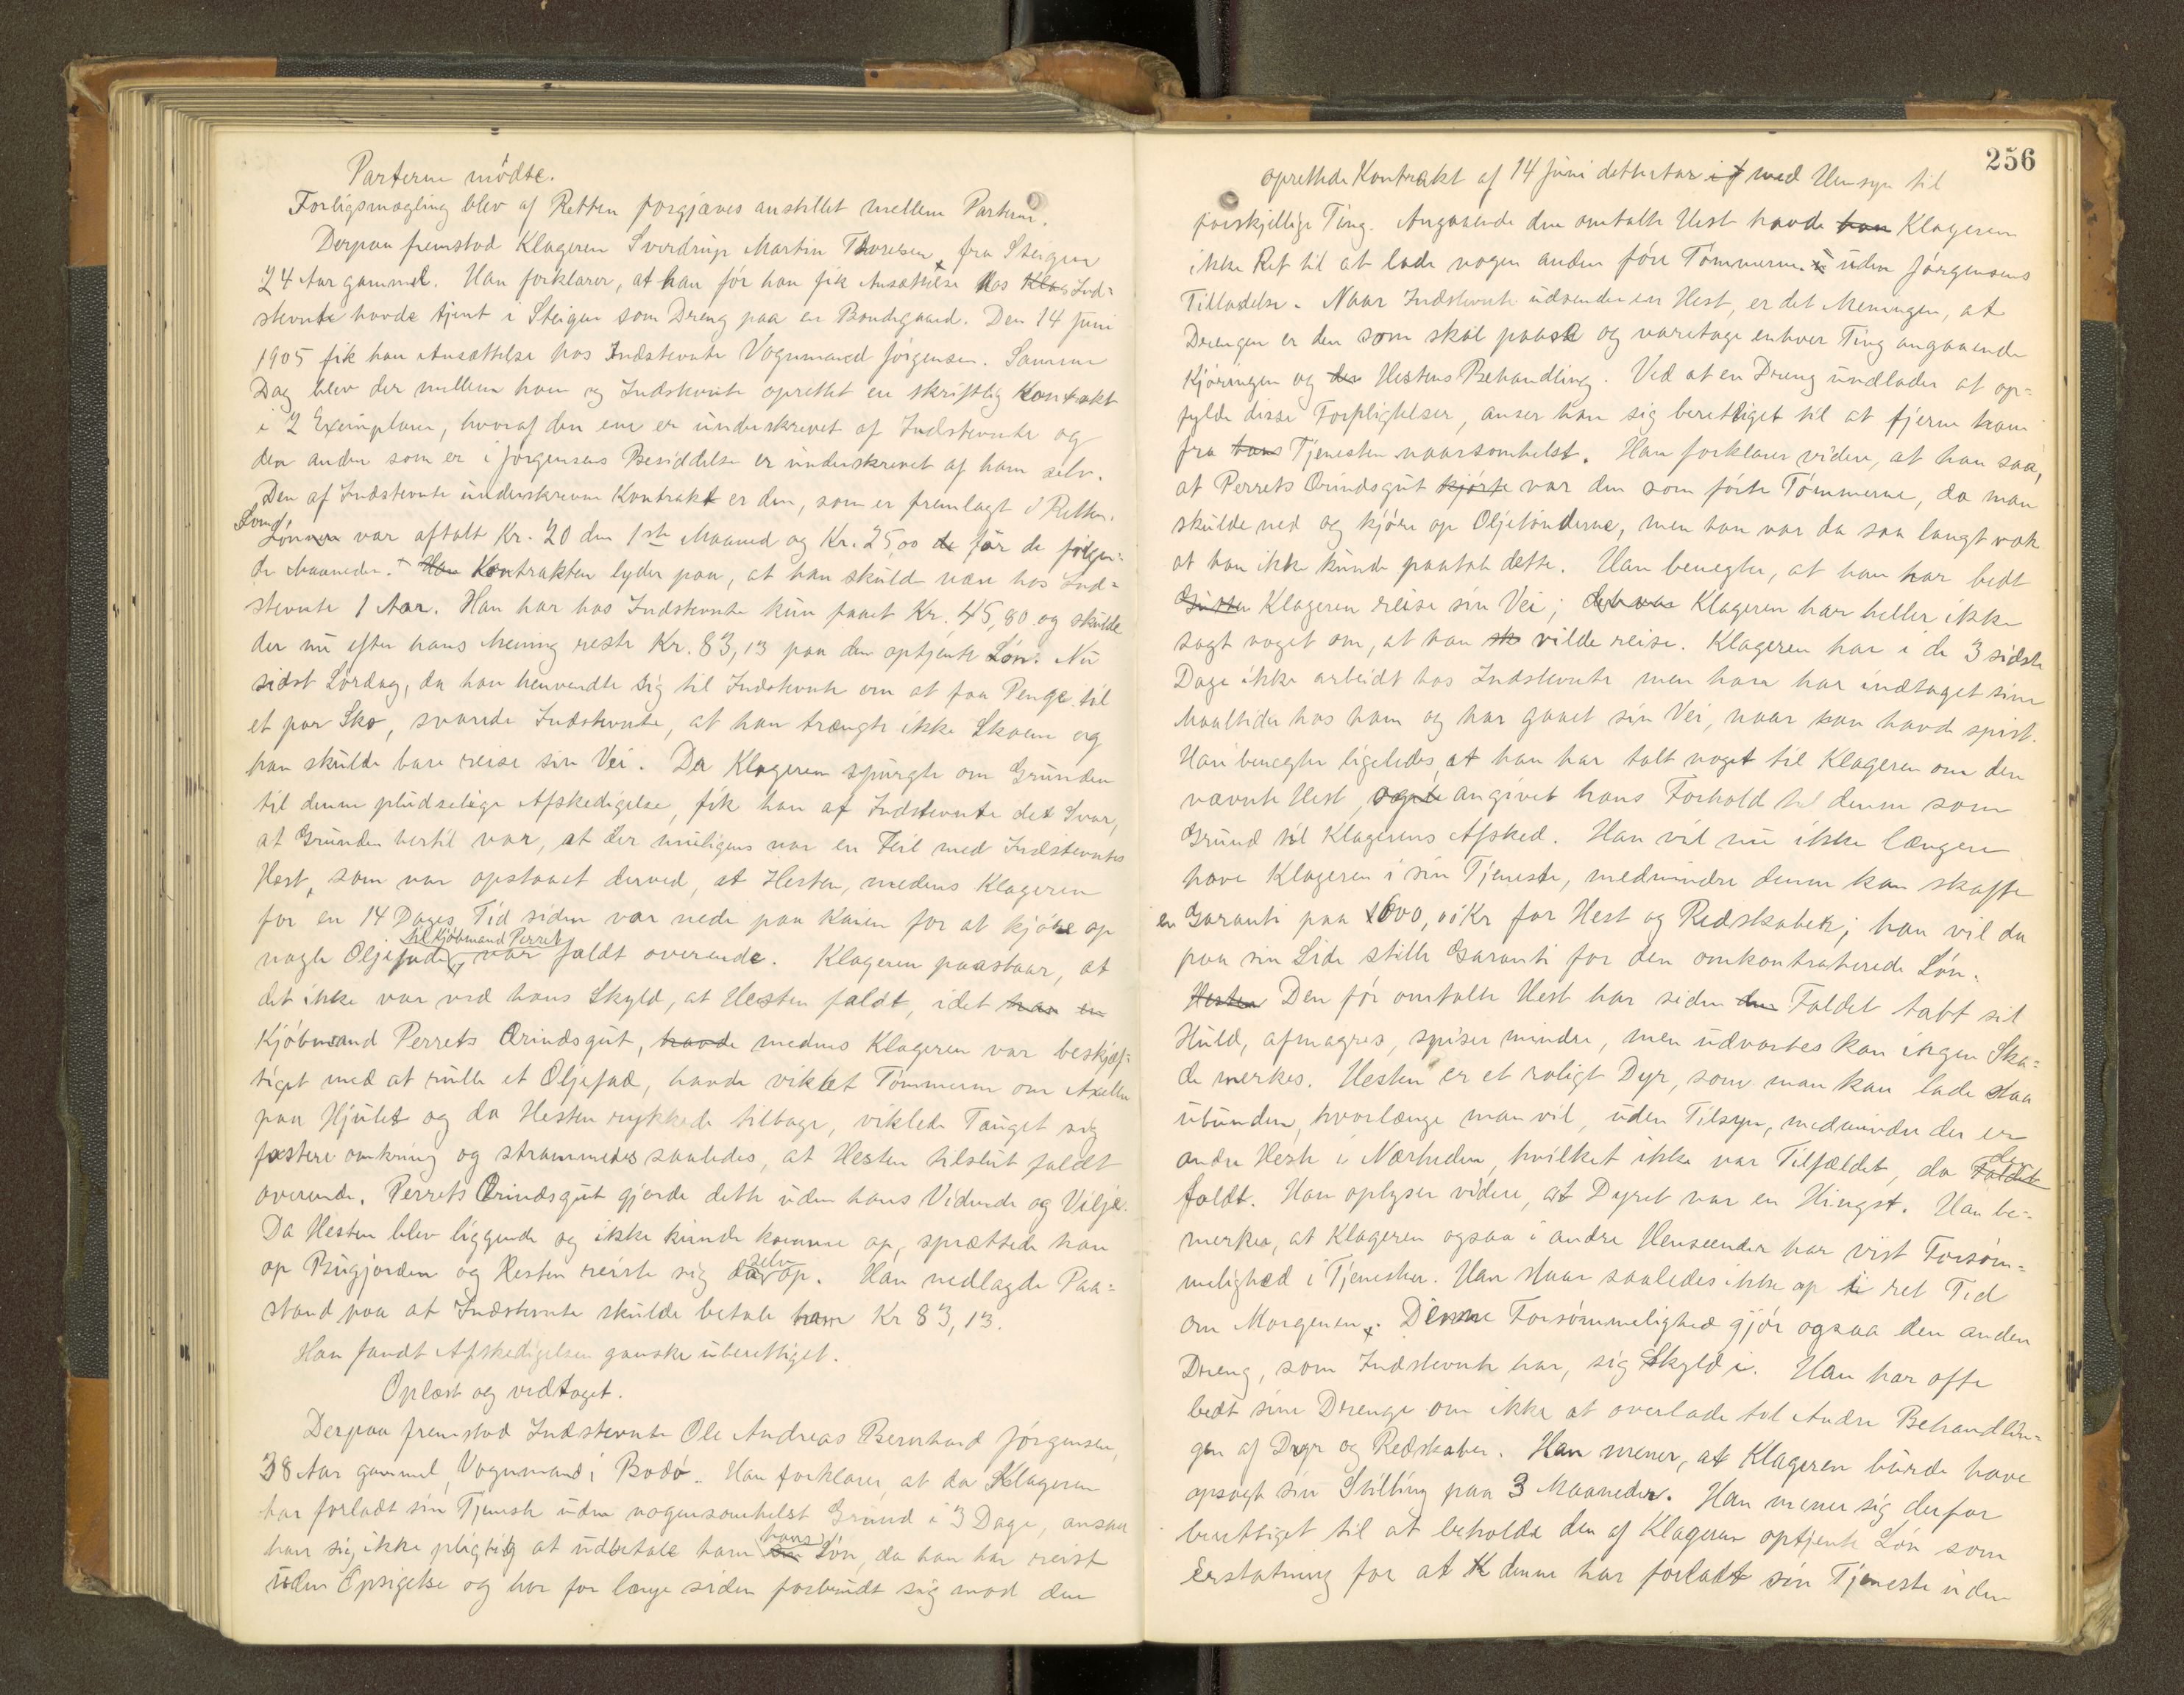 Parterne mödte.
Forligsmægling blev af Retten forgjæves anstillet mellem Parterne.
Derpaa fremstod Klageren Sverdrup Martin Thoresen, fra Steigen
24 Aar gammel. Han forklarer, at han för han fik Ansættelse hos Klag Ind=
stevnte havde tjent i Steigen som Dreng paa en Bondegaard. Den 14 Juni
1905 fik han Ansættelse hos Indstevnte Vognmand Jörgensen. Samme
Dag blev der mellem ham og Indstevnte oprettet en skriftlig Kontrakt
i 2 Exemplarer, hvoraf den ene er underskrevet af Indstevnte og
den anden som er i Jörgensens Besiddelse er underskrevet af ham selv.
Den af Indstevnte underskrevne Kontrakt er den, som er fremlagt i Retten.
Som Lönnen var aftalt Kr. 20 den 1ste Maaned og Kr. 25,00 de for de fölgen=
de Maaneder. Han Kontrakten lyder paa, at han skulde være hos Ind=
stevnte 1 Aar. Han har hos Indstevnte kun faaet Kr. 45,80 og skulde
der nu efter hans Mening reste Kr. 83,13 paa den optjente Lön. Nu
sidst Lördag, da han henvendte sig til Indstevnte om at faa Penge til
et par Sko, svarede Indstevnte, at han trængte ikke Skoene og
han skulde bare reise sin Vei. Da Klageren spurgte om Grunden
til denne pludselige Afskedigelse, fik han af Indstevnte det Svar,
at Grunden hertil var, at der muligens var en Feil med Indstevntes
Hest, som var opstaaet derved, at Hesten, medens Klageren
for en 14 Dages Tid siden var nede paa Kaien for at kjöre op
nogle Oljefade til Kjöbmand Perret, var faldt overende. Klageren paastaar, at
det ikke var ved hans Skyld, at Hesten faldt, idet han en
Kjöbmand Perrets Ærindsgut, havde medens Klageren var beskjæf=
tiget med at rulle et Oljefad, havde viklet Tömmerne om Axellen
paa Hjulet og da Hesten rykkede tilbage, viklede Tauget sig
fastere omkring og strammedes saaledes, at Hesten tilslut faldt
overende. Perrets Ærindsgut gjorde dette uden hans Vidende og Vilje.
Da Hesten blev liggende og ikke kunde komme op, sprættede han
op Bugjorden og Hesten reiste sig da selv op. Han nedlagde Paa=
stand paa at Indstevnte skulde betale ham Kr 83,13.
Han fandt Afskedigelsen ganske uberettiget.
Oplæst og vedtaget.
Derpaa fremstod Indstevnte Ole Andreas Bernhard Jörgensen,
38 Aar gammel, Vognmand i Bodö. Han forklarer, at da Klageren
har forladt sin Tjeneste uden nogensomhelst Grund i 3 Dage, anser
han sig ikke pligtig at udbetale ham sin hans Lön, da han har reist
uden Opsigelse og har for længe siden forbrudt sig mod den
256
oprettede Kontrakt af 14 Juni dette Aar if med Hensyn til
forskjellige Ting. Angaaende den omtalte Hest havde han Klageren
ikke Ret til at lade nogen anden före Tömmerne uden Jörgensens
Tilladelse. Naar Indstevnte udsender en Hest, er det Meningen, at
Drengen er den som skal paase og varetage enhver Ting angaaende
Kjöringen og den Hestens Behandling. Ved at en Dreng undlader at op=
fylde disse Forpligtelser, anser han sig berettiget til at fjerne ham
fra hans Tjenesten naarsomhelst. Han forklarer videre, at han saa,
at Perrets Ærindsgut kjörte var den som förte Tömmerne, da man
skulde ned og kjöre op Oljetönderne, men han var da saa langt væk
at han ikke kunde paatale dette. Han benegter, at han har bedt
Gutten Klageren reise sin Vei; det var Klageren har heller ikke
sagt noget om, at han sk vilde reise. Klageren har i de 3 sidste
Dage ikke arbeidt hos Indstevnte men han har indtaget sine
Maaltider hos ham og har gaaet sin Vei, naar han havde spist.
Han benegter ligeledes, at han har talt noget til Klageren om den
nævnte Hest, angivet hans Forhold til denne som
Grund til Klagerens Afsked. Han vil nu ikke længere
have Klageren i sin Tjeneste, medmindre denne kan skaffe
en Garanti paa 600,00 Kr for Hest og Redskaber; han vil da
paa sin Side stille Garanti for den omkontraherede Lön.
Hesten Den för omtalte Hest har siden den Faldet tabt sit
Huld, afmagres, spiser mindre, men udvortes kan ingen Ska=
de merkes. Hesten er et roligt Dyr, som man kan lade staa
ubunden, hvorlænge man vil, uden Tilsyn, medmindre der er
andre Heste i Nærheden, hvilket ikke var Tilfældet, da Faldet den
faldt. Han oplyser videre, at Dyret var en Hingst. Han be=
merker, at Klageren ogsaa i andre Henseender har vist Forsöm=
melighed i Tjenesten. Han staar saaledes ikke op i ret Tid
om Morgenen. Denne Forsömmelighed gjör ogsaa den anden
Dreng, som Indstevnte har, sig Skyld i. Han har ofte
bedt sine Drenge om ikke at overlade til Andre Behandlin=
gen af Dyr og Redskaber. Han mener, at Klageren burde have
opsagt sin Stilling paa 3 Maaneder. Han mener sig derfor
berettiget til at beholde den af Klageren optjente Lön som
Erstatning for at K denne har forladt sin Tjeneste uden